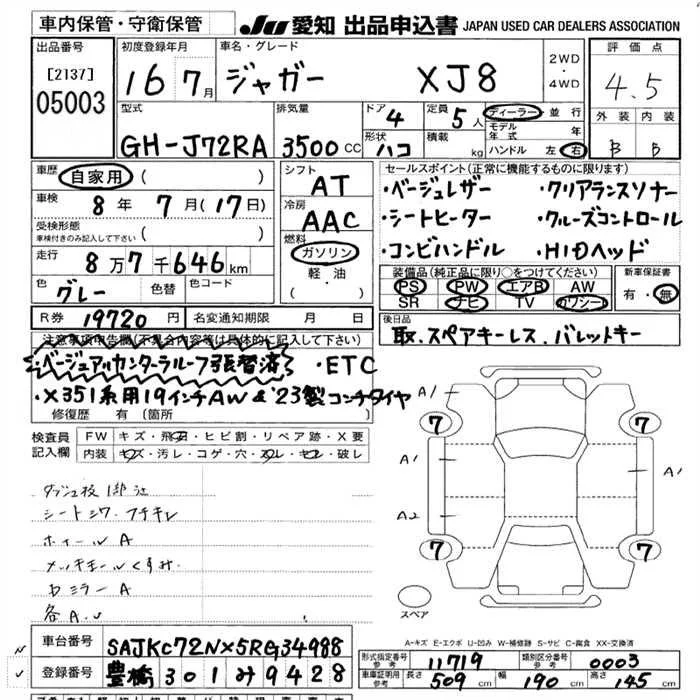 車内保管・守衛保管
JU 愛知 出品申込書 JAPAN USED CAR DEALERS ASSOCIATION
出品番号
[2137]
05003
初度登録年月
16 7月
車名・グレード
ジャガー XJ8
2WD
・
4WD
評価点
4.5
外装 内装
B B
型式
GH-J72RA
排気量
3500 CC
ドア
4
形状
ハコ
定員
5人
積載
kg
ディーラー 並行
モデル年式 年
ハンドル 左 右
車歴
自家用 ( )
車検
8年 7月(17日)
受検形態
車検付きのみ記入して下さい ( )
走行
8万7千646km
色
グレー
色替
色コード
シフト
AT
冷房
AAC
燃料
ガソリン
軽・油
( )
セールスポイント(正常に機能するものに限ります)
・ベージュレザー ・クリアランスソナー
・シートヒーター ・クルーズコントロール
・コンビハンドル ・HIDヘッド
装備品(純正品に限り○をつけてください)
PS PW エアB AW
SR ナビ TV カワシート
新車保証書
有・無
R券 19720円
名変通知期限 月 日
後日品
取.スペアキーレス.バレットキー
注意事項申告欄(不具合内容等は具体的に記入して下さい)
・ETC
・X351系用19インチAW&'23製コンチタイヤ
修復歴 有(箇所
検査員
記入欄
FW キズ・飛石・ヒビ割・リペア跡・X要
内装 キズ・汚レ・コゲ・穴・スレ・キレ・破レ
シートシワ.フチキレ
ホイールA
メッキモールくすみ
カミラーA
A1
A1
A1
A2
7
7
7
7
スペア
A-キズ E-エクボ U-凹み W-補修跡 S-サビ C-腐食 XX-交換済
車台番号
SAJKC72NX5RG34988
登録番号
豊橋 301 み 9428
形式指定番号
参考
11719
類別区分番号
参考
0003
車庫証明
参考
長さ
509
幅
190
高さ
145